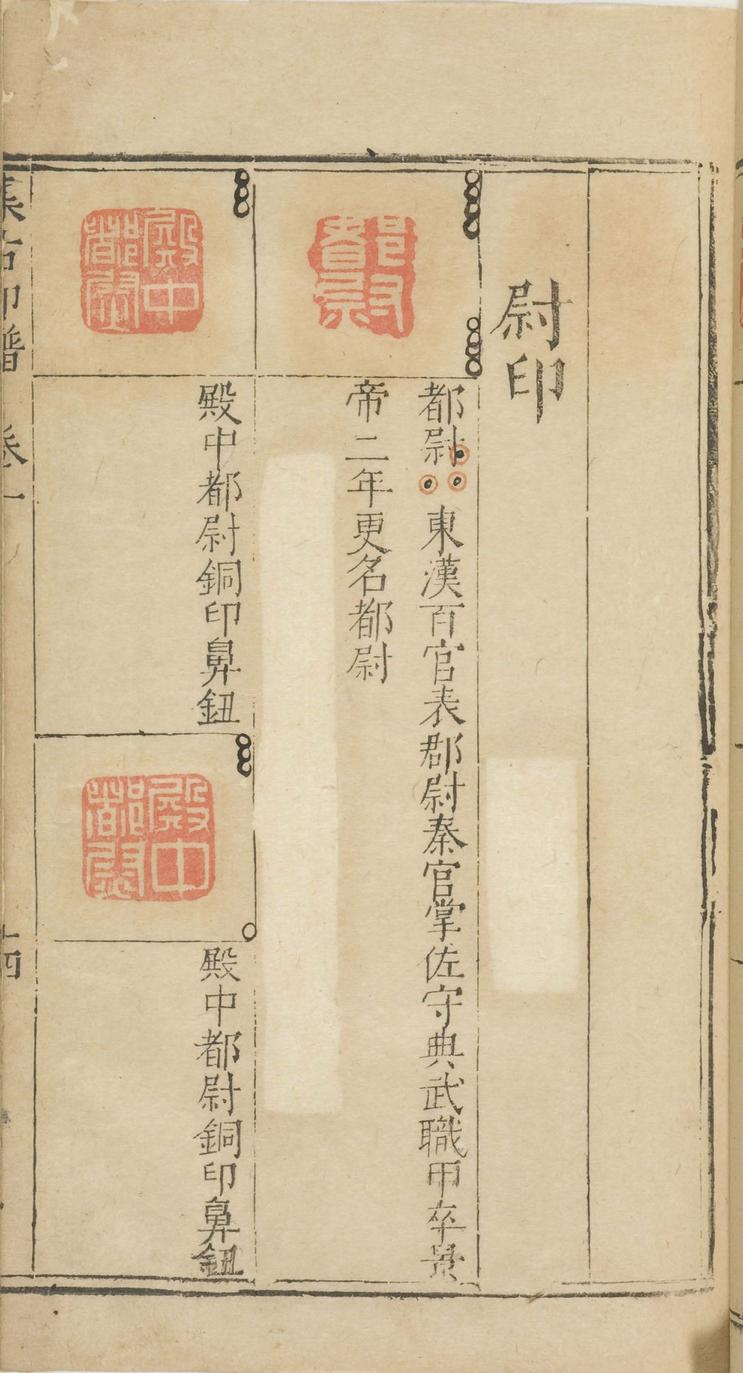 尉印
都尉
都尉 東漢百官表郡尉秦官掌佐守典武職甲卒景
帝二年更名都尉
殿中都尉
殿中都尉銅印鼻鈕
殿中都尉
殿中都尉銅印鼻鈕
集古印譜 卷一 十四